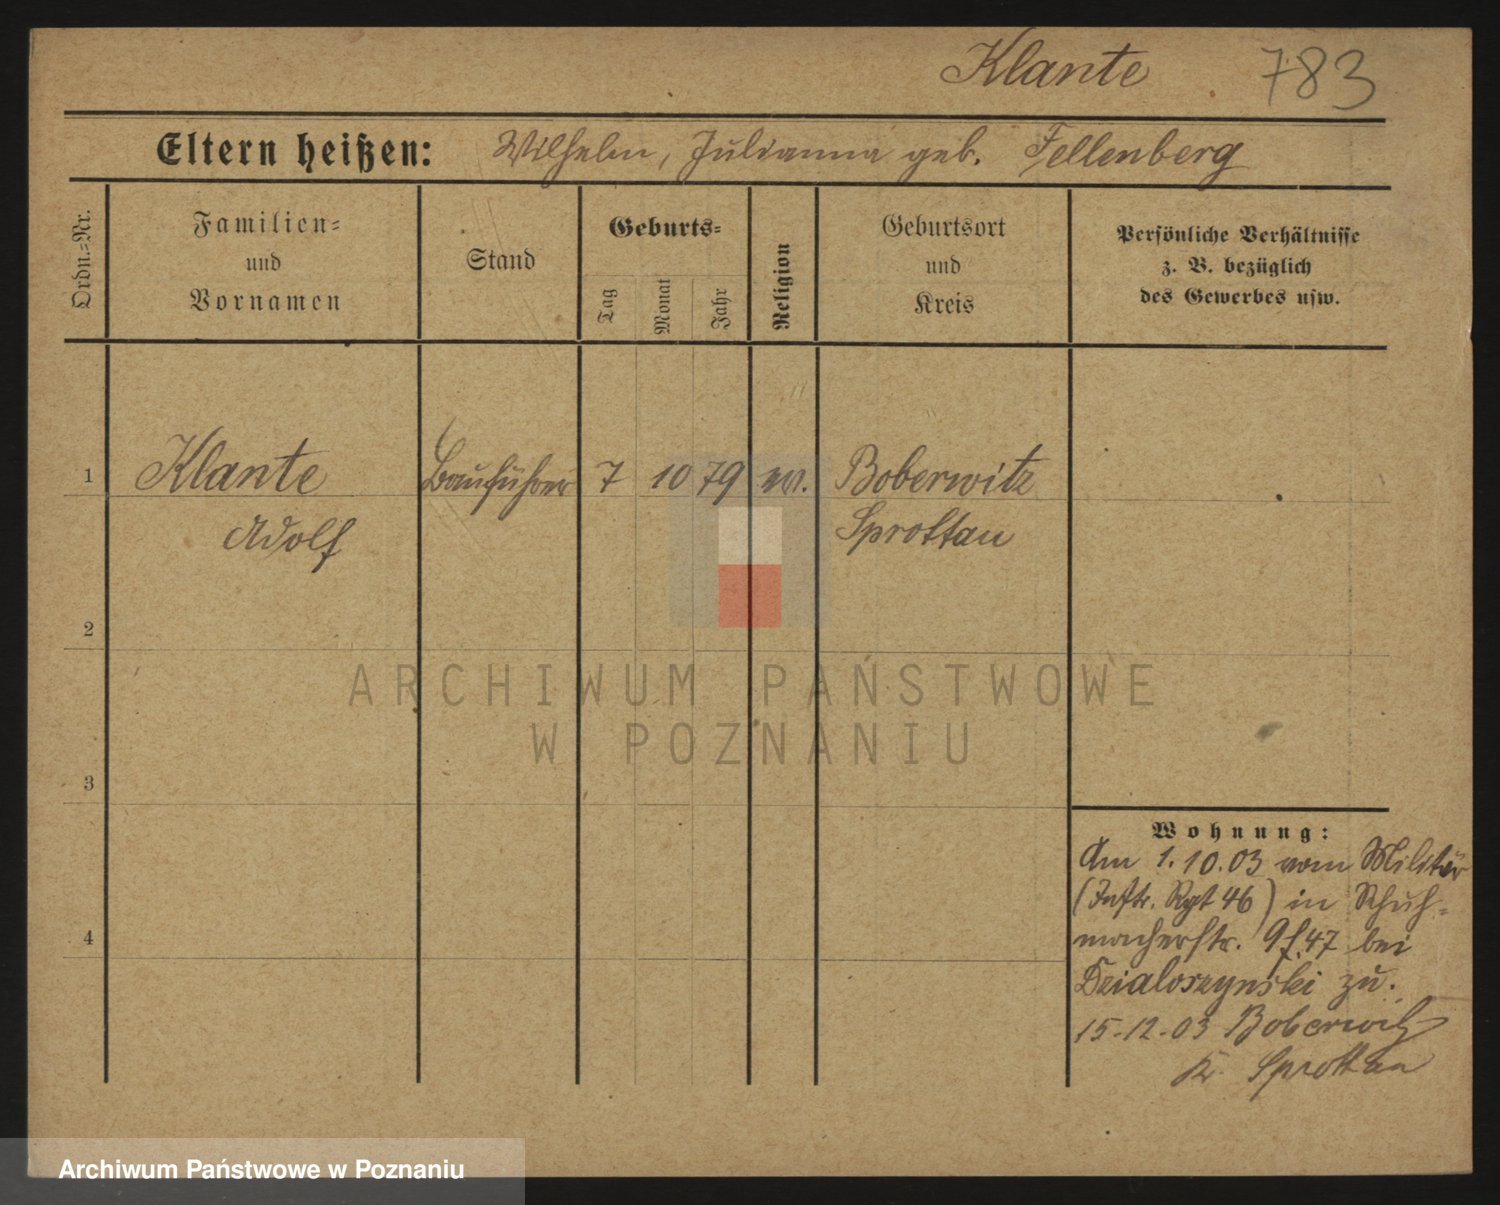 Klante 783
Eltern heißen: Wilhelm, Julianna geb. Fellenberg
Ordn.-Nr.
Familien-
und
Vornamen
Stand
Geburts-
Tag
Monat
Jahr
Religion
Geburtsort
und
Kreis
Persönliche Verhältnisse
z. B. bezüglich
des Gewerbes usw.
1 Klante Bauführer 7 10 79 ev. Boberwitz
Adolf Sprottau
2
3
4
Wohnung:
Am 1.10.03 vom Militär
(Inftr. Rgt 46) in Schuh-
macherstr. 9 f. 47 bei
Dzialoszynski zu.
15-12-03 Boberwitz
Kr. Sprottau
ARCHIWUM PAŃSTWOWE
W POZNANIU
Archiwum Państwowe w Poznaniu